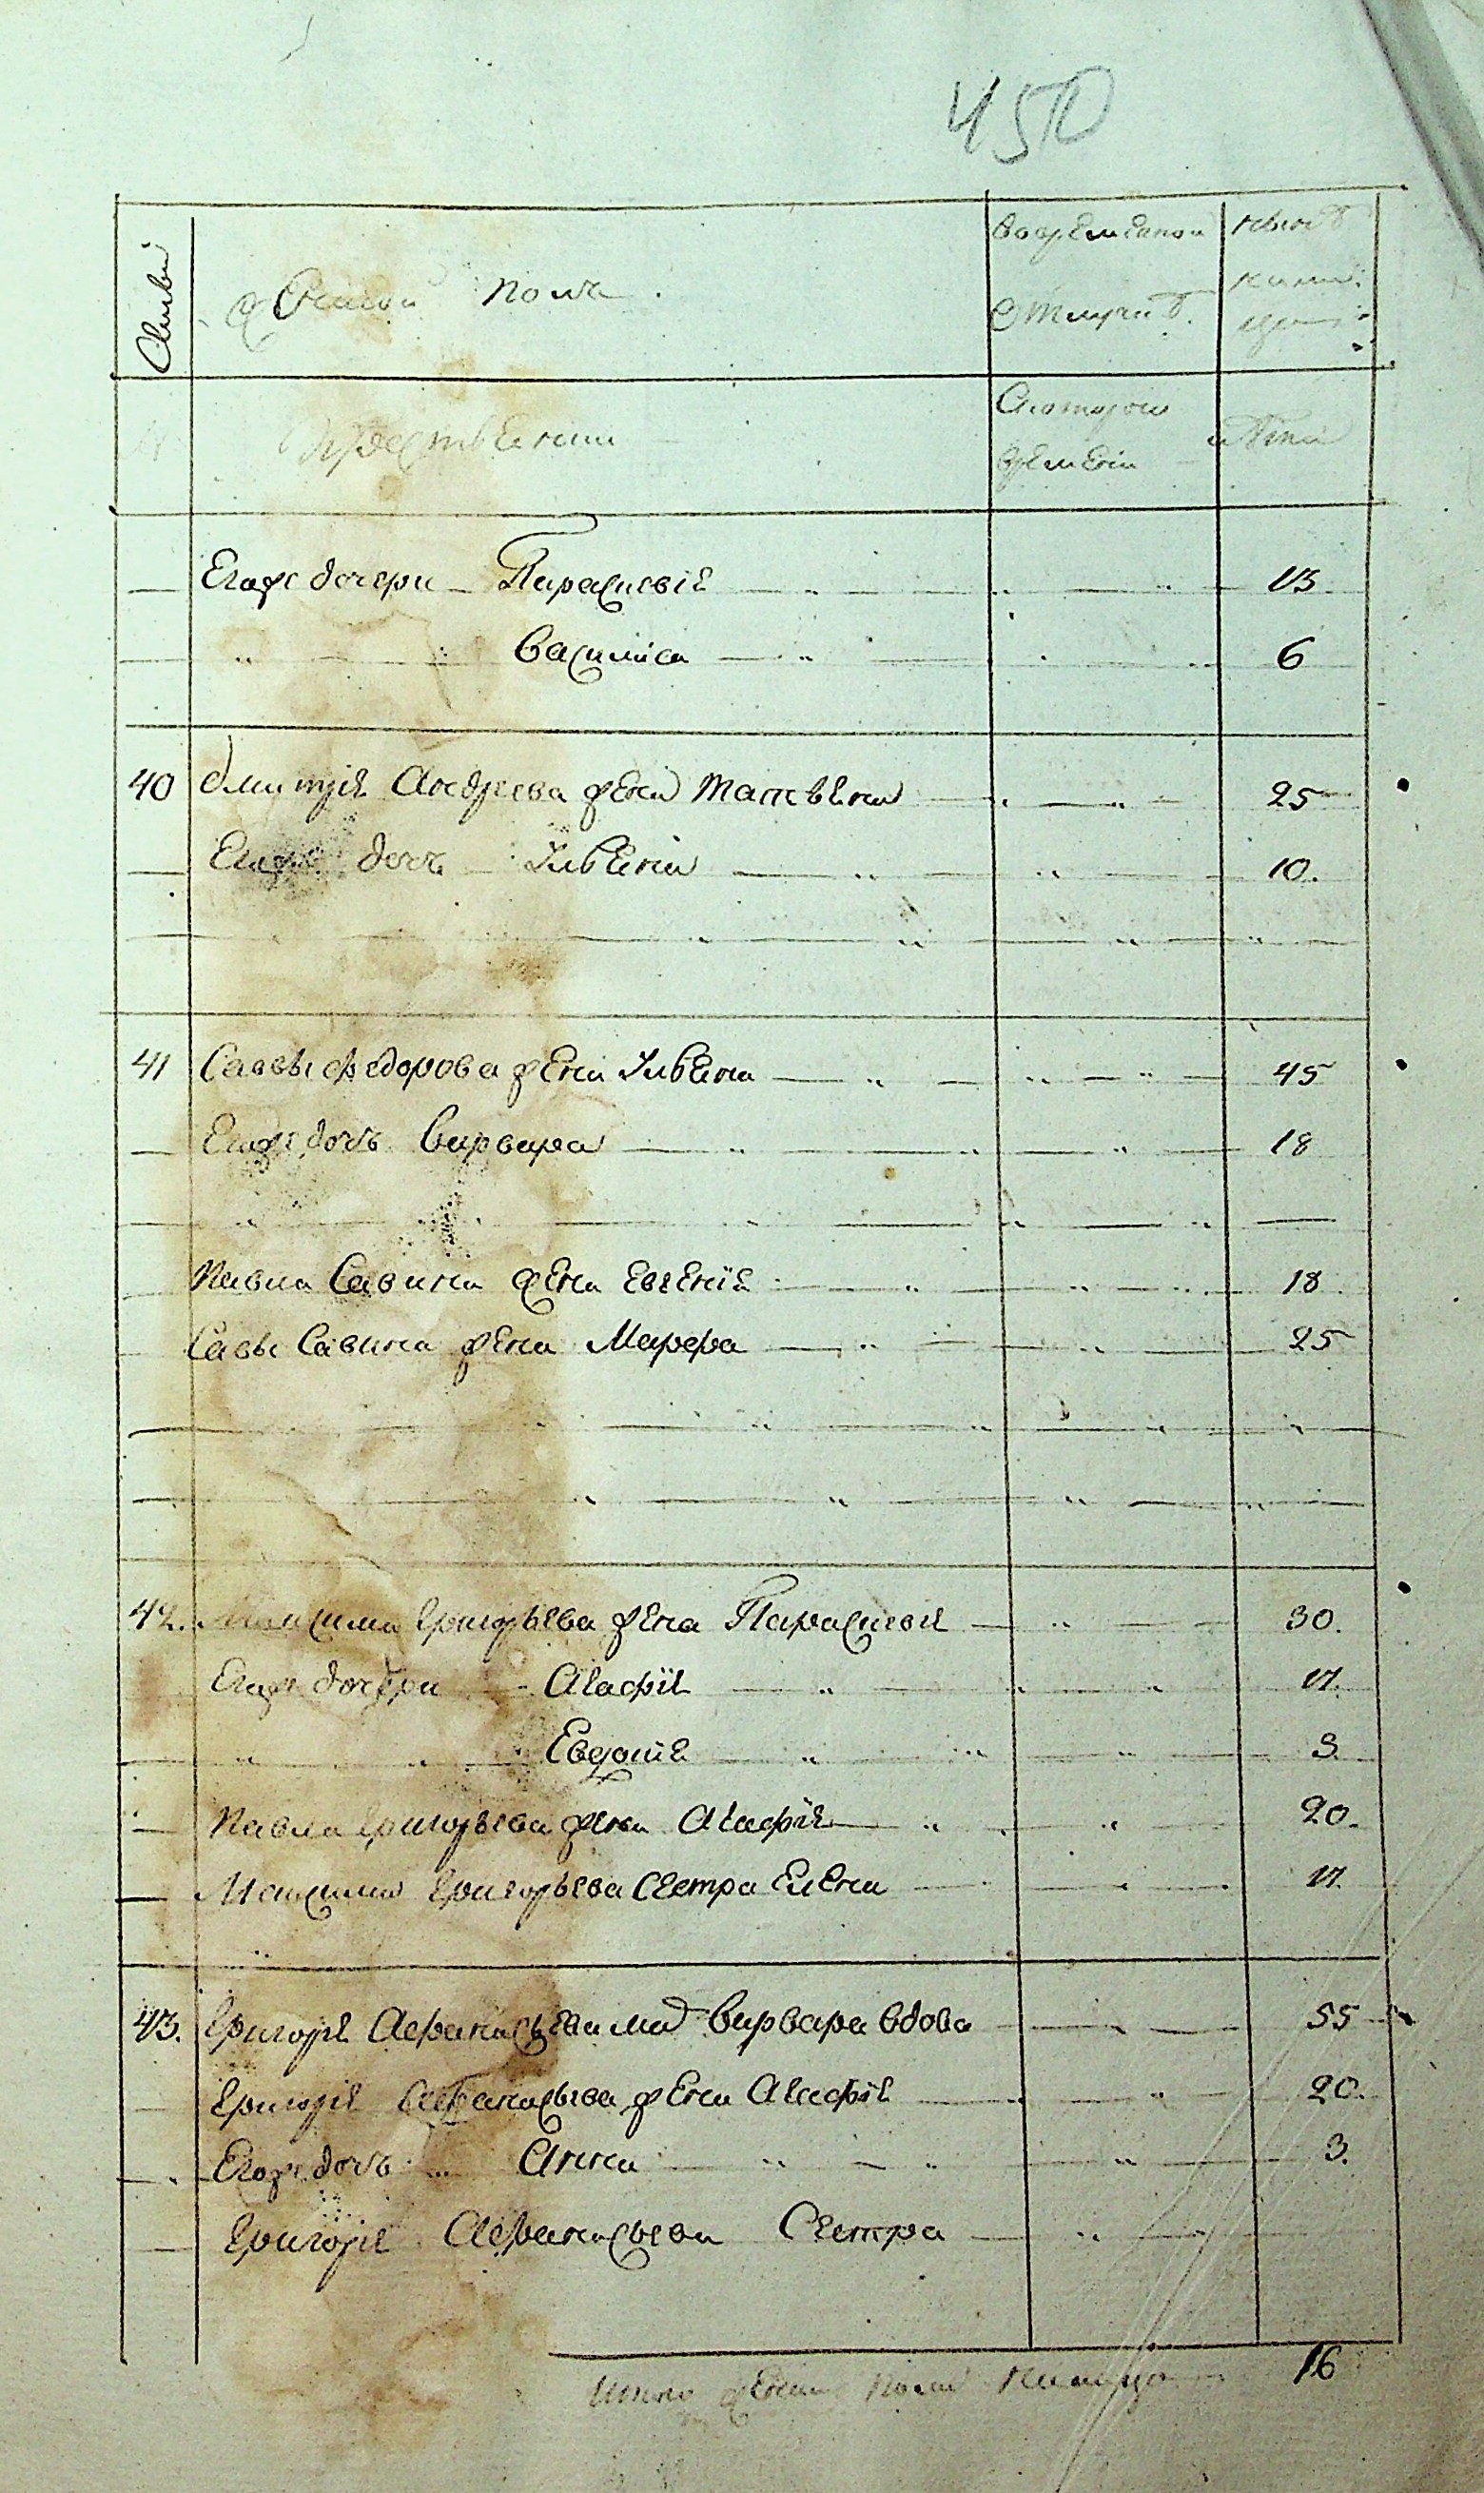 450
Семьи
Женской полъ.
во временной
отлучкѣ.
нынѣ
на ли
цо
№
Крестьянъ
Съ котораго
времени
лѣта
Егоже дочери Параскевія 13
Василиса 6
40 Дмитрія Андреева жена Матвѣена 25
Егоже дочь Ульена 10.
41 Саввы Федорова жена Ульена 45
Егоже дочь Варвара 18
Павла Савина жена Евгенія 18
Савы Савина жена Марфа 25
42. Максима Григорьева жена Параскевія 30.
Егоже дочери Агафія 11.
Евдокія 3.
Павла Григорьева жена Агафія 20.
Максима Григорьева Сестра Елена 11.
43. Григорія Афанасьева мать Варвара вдова 55
Григорія Афанасьева жена Агафія 20.
Егоже дочь Анна 3.
Григорія Афанасьева Сестра
Итого женска пола на лицо 16